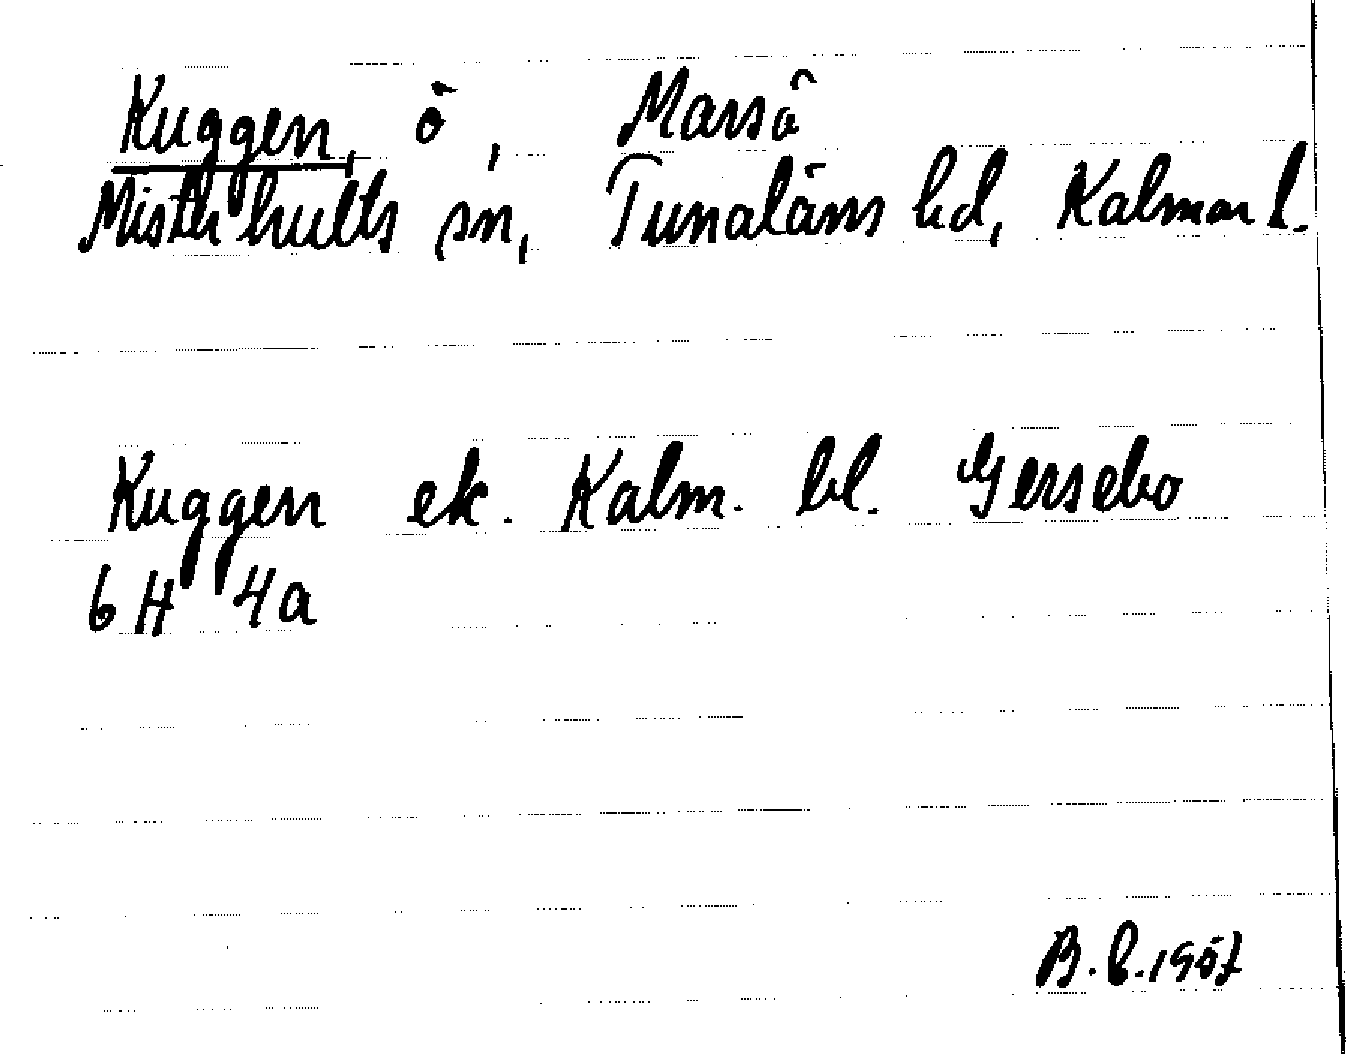 Kuggen, ö, Marsö
Misterhults sn, Tunaläns hd, Kalmar l.
Kuggen ek. Kalm. bl. Gersebo
6 H 4a
B.E. 1957